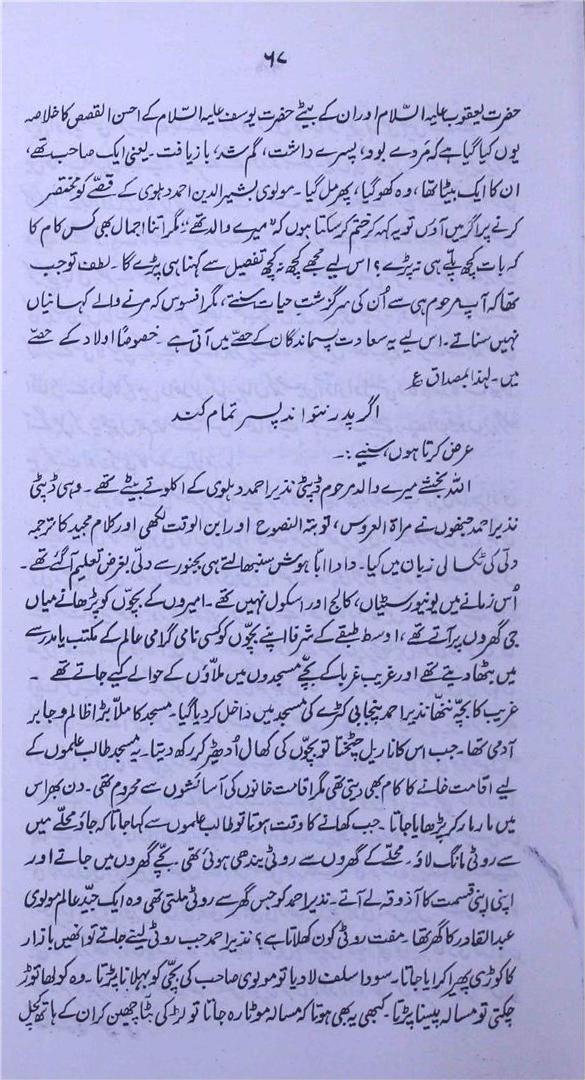 ۶۸
حضرت یعقوب علیہ السّلام اور ان کے بیٹے حضرت یوسف علیہ السّلام کے احسن القصص کا خلاصہ
یوں کیا گیا ہے کہ مَردے بود، پسرے داشت، گم شد، باز یافت۔ یعنی ایک صاحب تھے،
ان کا ایک بیٹا تھا، وہ کھو گیا، پھر مل گیا۔ مولوی بشیر الدین احمد دہلوی کے قصّے کو مختصر
کرنے پر اگر میں آؤں تو یہ کہہ کر ختم کر سکتا ہوں کہ "میرے والد تھے"۔ مگر اتنا اجمال بھی کس کام کا
کہ بات کچھ پلّے ہی نہ پڑے؟ اس لیے مجھے کچھ نہ کچھ تفصیل سے کہنا ہی پڑے گا۔ لطف تو جب
تھا کہ آپ مرحوم ہی سے اُن کی سرگزشتِ حیات سنتے، مگر افسوس کہ مرنے والے کہانیاں
نہیں سناتے۔ اس لیے یہ سعادت پسماندگان کے حصّے میں آتی ہے۔ خصوصًا اولاد کے حصّے
میں۔ لہٰذا بمصداق ؏
اگر پدر نتواند پسر تمام کند
عرض کرتا ہوں، سنیے :۔
اللہ بخشے میرے والد مرحوم ڈپٹی نذیر احمد دہلوی کے اکلوتے بیٹے تھے۔ وہی ڈپٹی
نذیر احمد جنھوں نے مراۃ العروس، توبتہ النصوح اور ابن الوقت لکھی اور کلام مجید کا ترجمہ
دلّی کی ٹکسالی زبان میں کیا۔ دادا ابّا ہوش سنبھالتے ہی بجنور سے دلّی بغرض تعلیم آگئے تھے۔
اُس زمانے میں یونیورسٹیاں، کالج اور اسکول نہیں تھے۔ امیروں کے بچّوں کو پڑھانے میاں
جی گھروں پر آتے تھے، اوسط طبقے کے شرفا اپنے بچّوں کو کسی نامی گرامی عالم کے مکتب یا مدرسے
میں بٹھا دیتے تھے اور غریب غربا کے بچّے مسجدوں میں ملّاؤں کے حوالے کیے جاتے تھے۔
غریب کا بچّہ ننھّا نذیر احمد پنجابی کٹرے کی مسجد میں داخل کر دیا گیا۔ مسجد کا ملّا بڑا ظالم و جابر
آدمی تھا۔ جب اس کا ناریل چٹختا تو بچّوں کی کھال اُدھیڑ کر رکھ دیتا۔ یہ مسجد طالب علموں کے
لیے اقامت خانے کا کام بھی دیتی تھی مگر اقامت خانوں کی آسائشوں سے محروم تھی۔ دن بھر اس
میں مار مار کر پڑھایا جاتا۔ جب کھانے کا وقت ہوتا تو طالب علموں سے کہا جاتا کہ جاؤ محلّے میں
سے روٹی مانگ لاؤ۔ محلّے کے گھروں سے روٹی بندھی ہوئی تھی۔ بچّے گھروں میں جاتے اور
اپنی اپنی قسمت کا آذوقہ لے آتے۔ نذیر احمد کو جس گھر سے روٹی ملتی تھی وہ ایک جیّد عالم مولوی
عبد القادر کا گھر تھا۔ مفت روٹی کون کھلاتا ہے؟ نذیر احمد جب روٹی لینے جاتے تو انھیں بازار
کا کوڑی پھیرا کرایا جاتا۔ سودا سلف لا دیا تو مولوی صاحب کی بچّی کو بہلانا پڑتا۔ وہ کولھا توڑ
چکتی تو مسالہ پیسنا پڑتا۔ کبھی یہ بھی ہوتا کہ مسالہ موٹا رہ جاتا تو لڑکی بٹّا چھین کر ان کے ہاتھ کچل